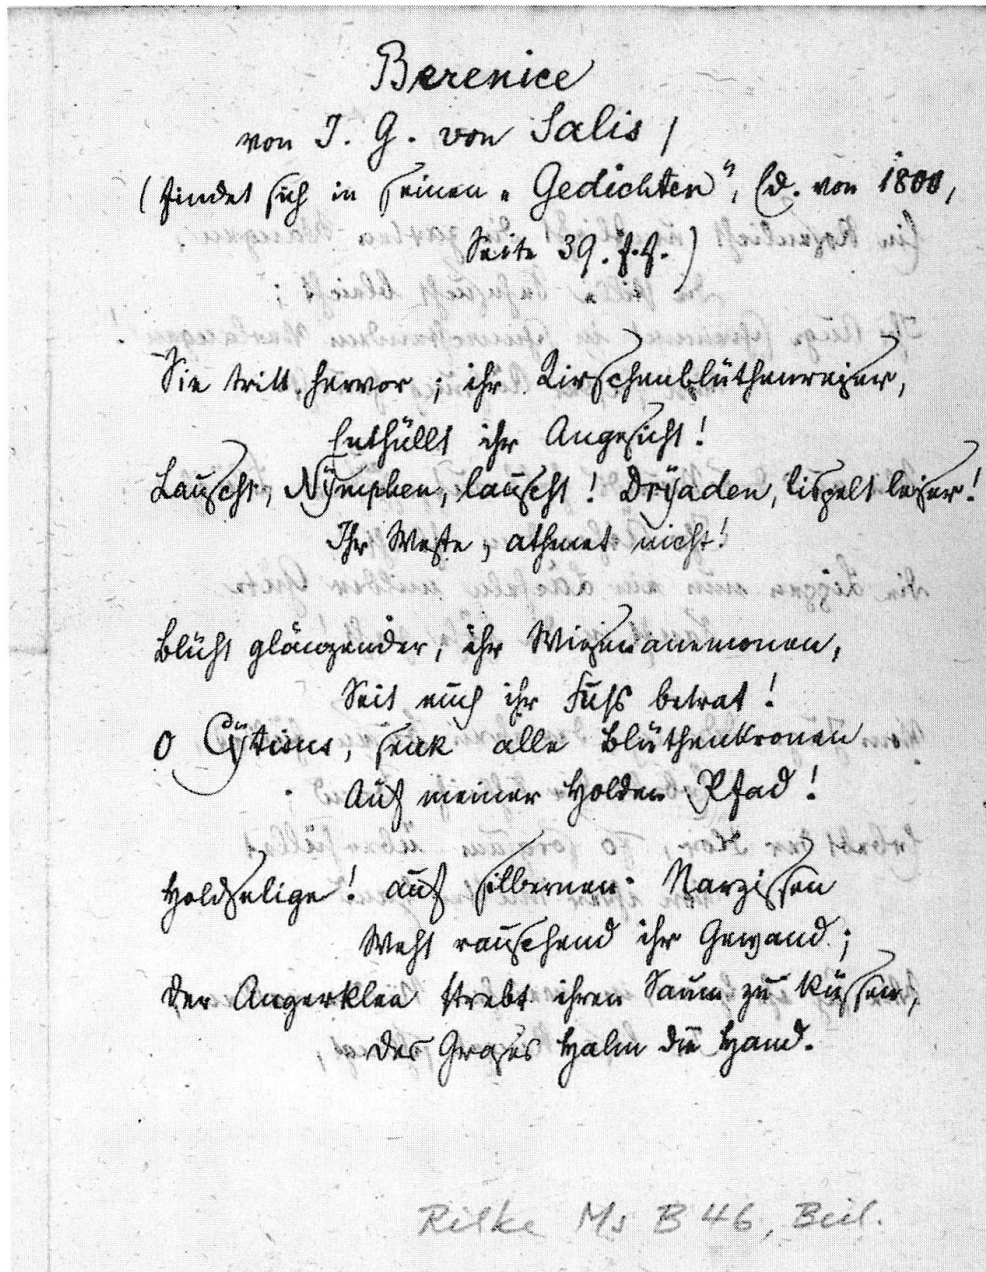 Berenice
von J. G. von Salis /
(findet sich in seinen „Gedichten“, Ed. von 1800,
Seite 39. f.f.)
Sie tritt hervor; ihr Kirschenblüthenreiser,
Enthüllt ihr Angesicht!
Lauscht, Nÿmphen, lauscht! Drÿaden, lispelt leiser!
Ihr Weste, athmet nicht!
Blüht glänzender, ihr Wiesenanemonen,
Seit euch ihr Fuhs betrat!
O Cÿtisus, senk alle Blüthenkronen
Auf meiner Holden Pfad!
Holdselige! auf silbernen Narzissen
Weht rauschend ihr Gewand;
Der Angerklee strebt ihren Saum zu küssen,
Des Grases Halm die Hand.
Rilke Ms B 46, Beil.